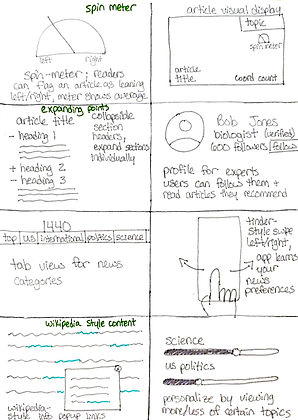 spin meter
left
right
spin-meter: readers
can flag an article as leaning
left/right, meter shows average
article visual display
topic
spin meter
article
title
coord count
expanding points
article title
- heading 1
+ heading 2
- heading 3
collapsible
section
headers,
expand sections
individually
Bob Jones
biologist (verified)
600 followers follow
profile for experts
users can follow them +
read articles they recommend
1440
top u.s international politics science
tab view for news
categories
tinder-
style swipe
left/right,
app learns
your
news
preferences
wikipedia style content
wikipedia-
style info popup links
science
us politics
personalize by viewing
more/less of certain topics